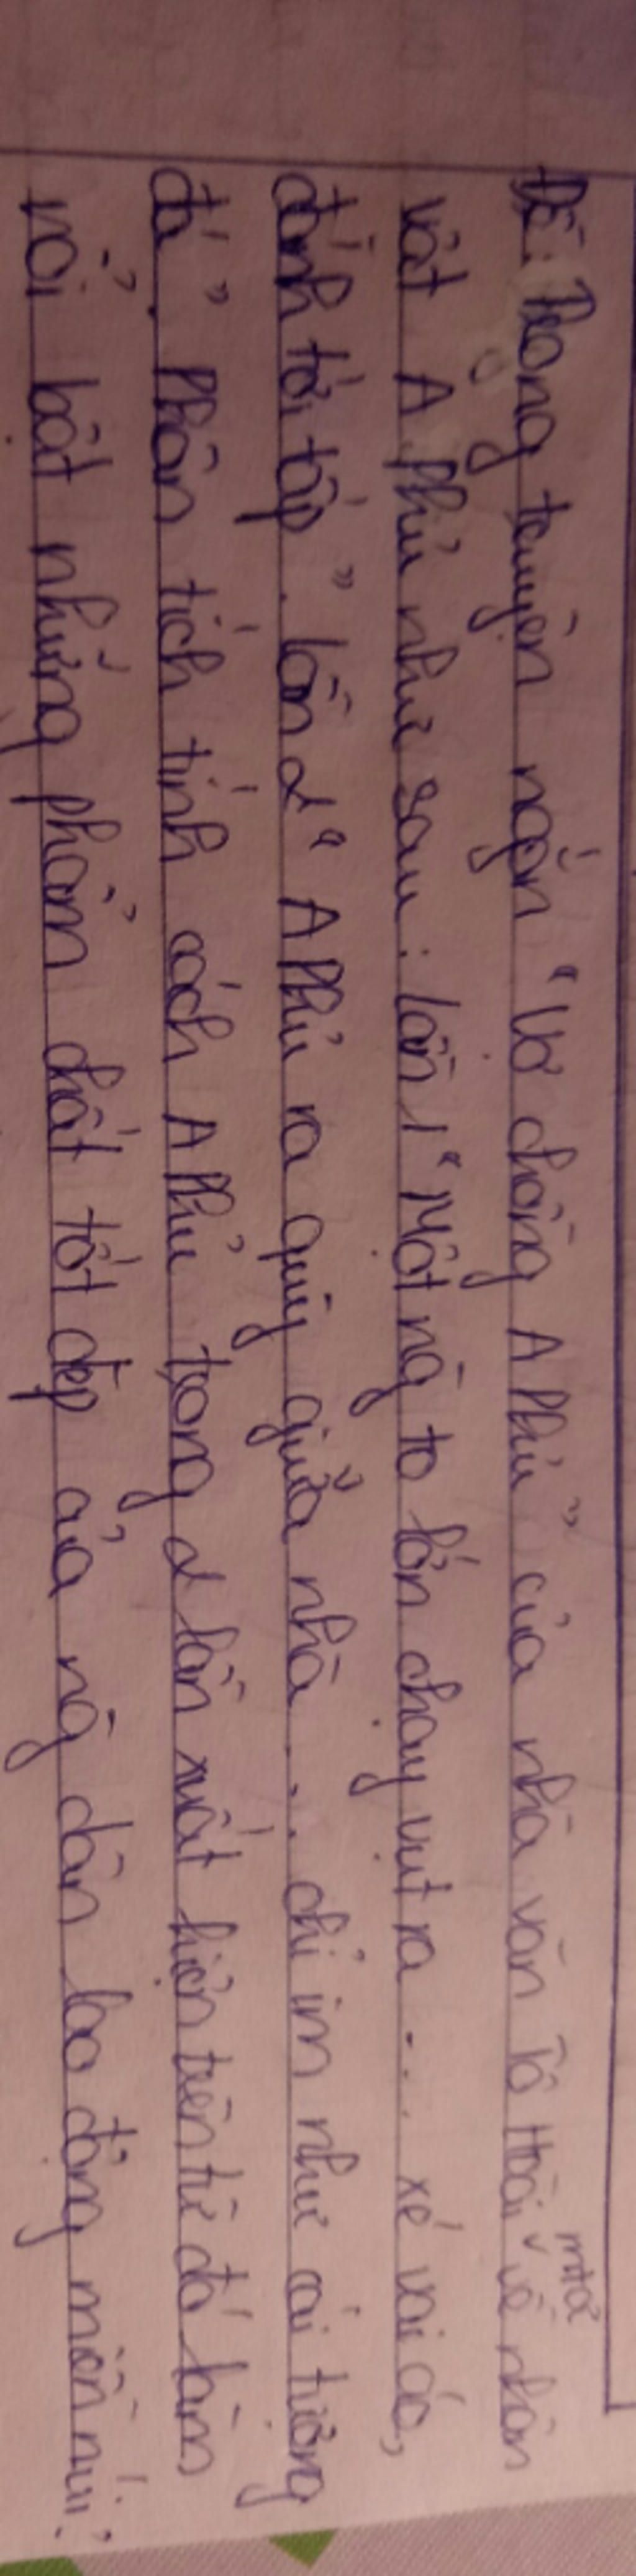 Đề: Trong truyện ngắn "Vợ chồng A Phủ" của nhà văn Tô Hoài mtả về nhân
vật A Phủ như sau: lần 1 "Một ng to lớn chạy vụt ra ... xé vai áo,
đánh tới tấp". lần 2 "A Phủ ra quỳ giữa nhà ... chỉ im như cái tượng
đá". Phân tích tính cách A Phủ trong 2 lần xuất hiện trên từ đó làm
nổi bật những phẩm chất tốt đẹp của ng dân lao động miền núi.